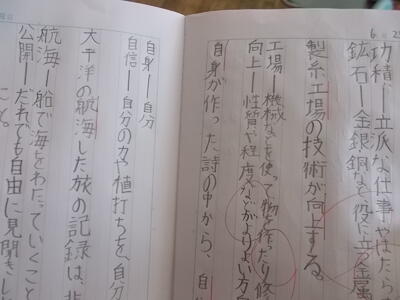 6 2
功績―立派な仕事やはたら
鉱石―金銀銅など役に立つ金属
製糸工場の技術が向上する。
工場―機械などを使って物を作ったり修
向上―性質や程度などがよりよい方
自身が作った詩の中から、自
自身―自分
自信―自分の力や値打ちを、自分
大平洋の航海した旅の記録は、
航海―船で海をわたっていくこと
公開―だれでも自由に見聞きし
こと。